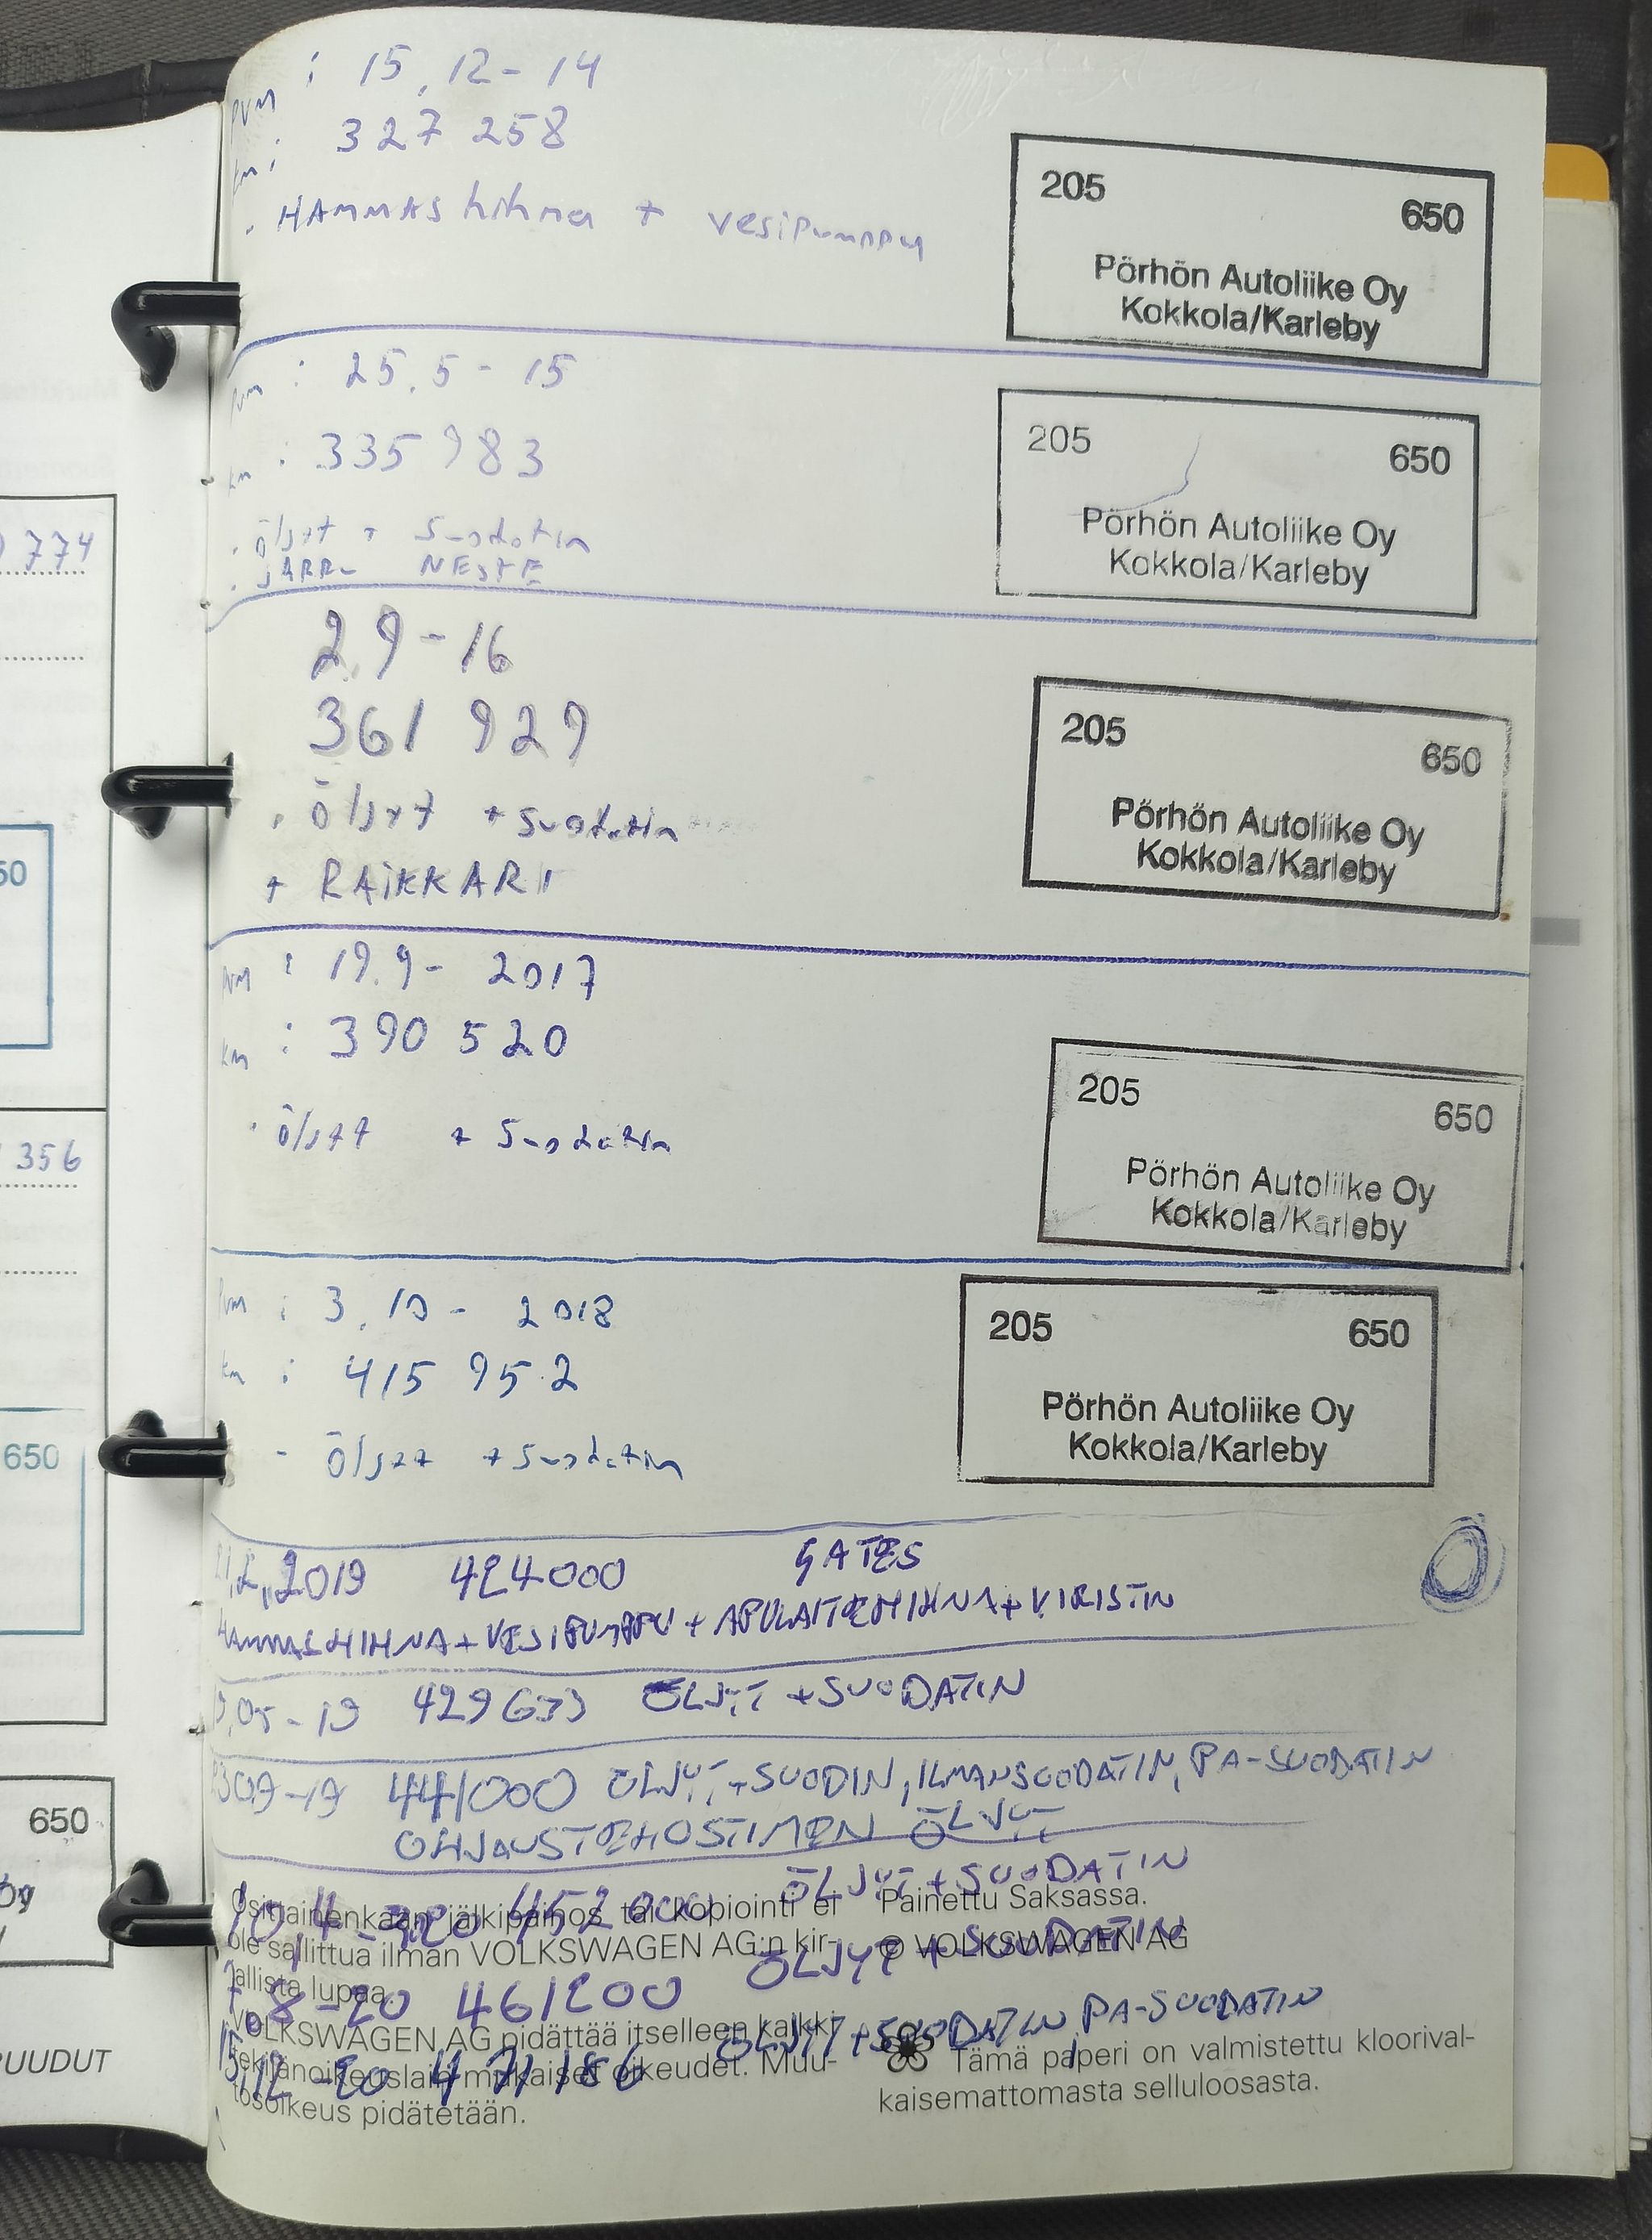 pvm : 15.12-14
km : 327 258
- HAMMAShihna + vesipumppu
205 650
Pörhön Autoliike Oy
Kokkola/Karleby
pvm : 25.5-15
km : 335 983
- öljyt + suodatin
- JARRU NESTE
205 650
Pörhön Autoliike Oy
Kokkola/Karleby
2.9-16
361 929
- öljyt + suodatin
+ RAIKKARI
205 650
Pörhön Autoliike Oy
Kokkola/Karleby
pvm : 19.9- 2017
km : 390 520
- öljyt + suodatin
205 650
Pörhön Autoliike Oy
Kokkola/Karleby
pvm : 3.10- 2018
km : 415 952
- öljyt + suodatin
205 650
Pörhön Autoliike Oy
Kokkola/Karleby
2019 424000 GATES
HAMMASHIHNA + VESIPUMPPU + APULAITEHIHNA + KIRISTIN
05-19 429633 ÖLJYT + SUODATIN
09-19 441000 ÖLJYT + SUODIN, ILMANSUODATIN, PA-SUODATIN
OHJAUSTEHOSTIMEN ÖLJYT
10.4-20 452000 ÖLJYT + SUODATIN
8-20 461200 ÖLJYT + SUODATIN
15.12-20 471186 ÖLJYT + SUODATIN, PA-SUODATIN
Osittainenkaan jälkipainos tai kopiointi ei
ole sallittua ilman VOLKSWAGEN AG:n kir-
jallista lupaa.
VOLKSWAGEN AG pidättää itselleen kaikki
tekijänoikeuslain mukaiset oikeudet. Muu-
tosoikeus pidätetään.
Painettu Saksassa.
© VOLKSWAGEN AG
Tämä paperi on valmistettu kloorival-
kaisemattomasta selluloosasta.
774
50
356
650
650
UUDUT